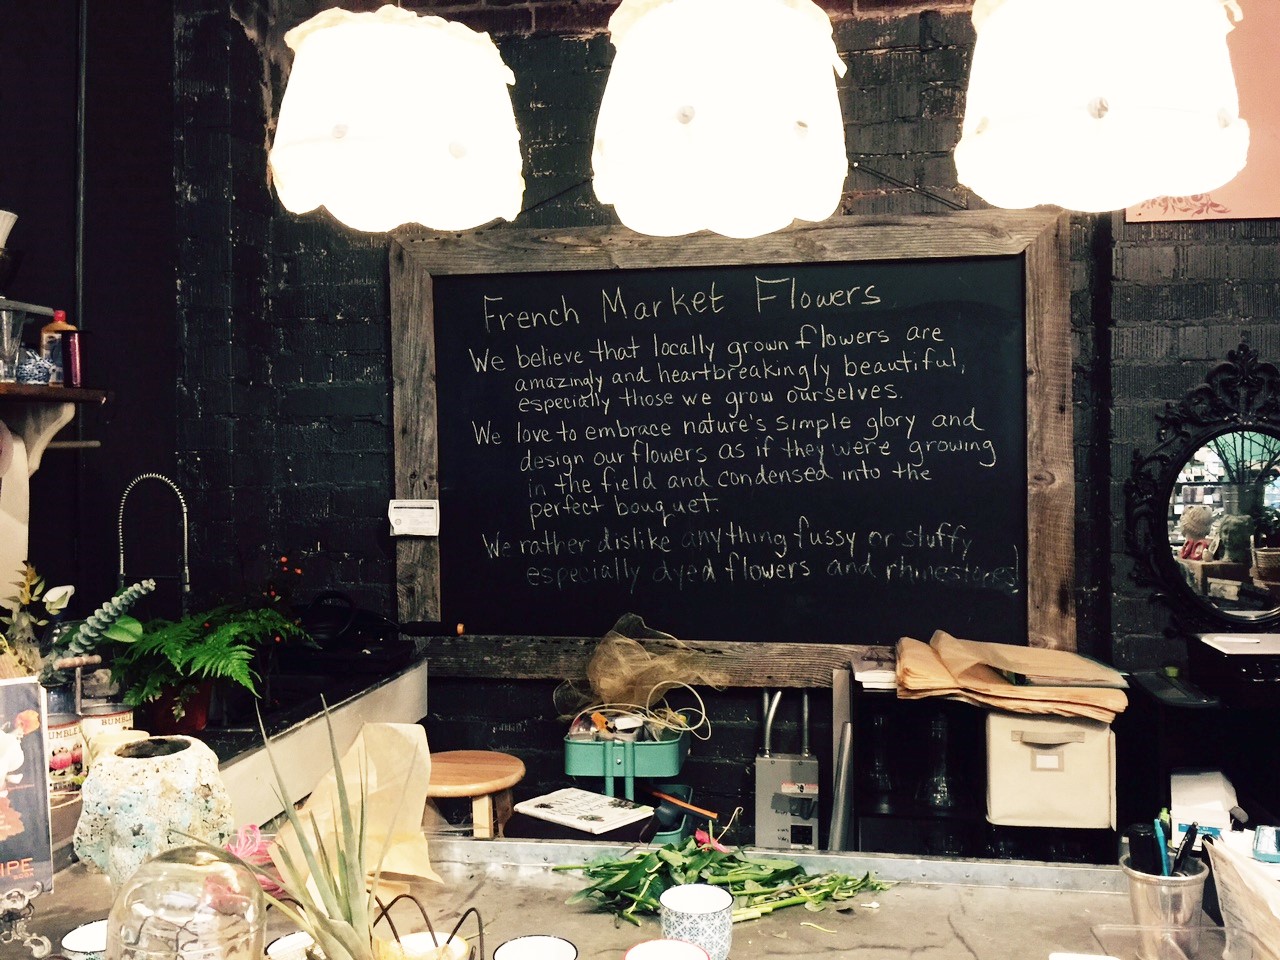 French Market Flowers
We believe that locally grown flowers are
amazingly and heartbreakingly beautiful,
especially those we grow ourselves.
We love to embrace nature's simple glory and
design our flowers as if they were growing
in the field and condensed into the
perfect bouquet.
We rather dislike anything fussy or stuffy
especially dyed flowers and rhinestones!
BUMBLE
BUMBLE
IPE